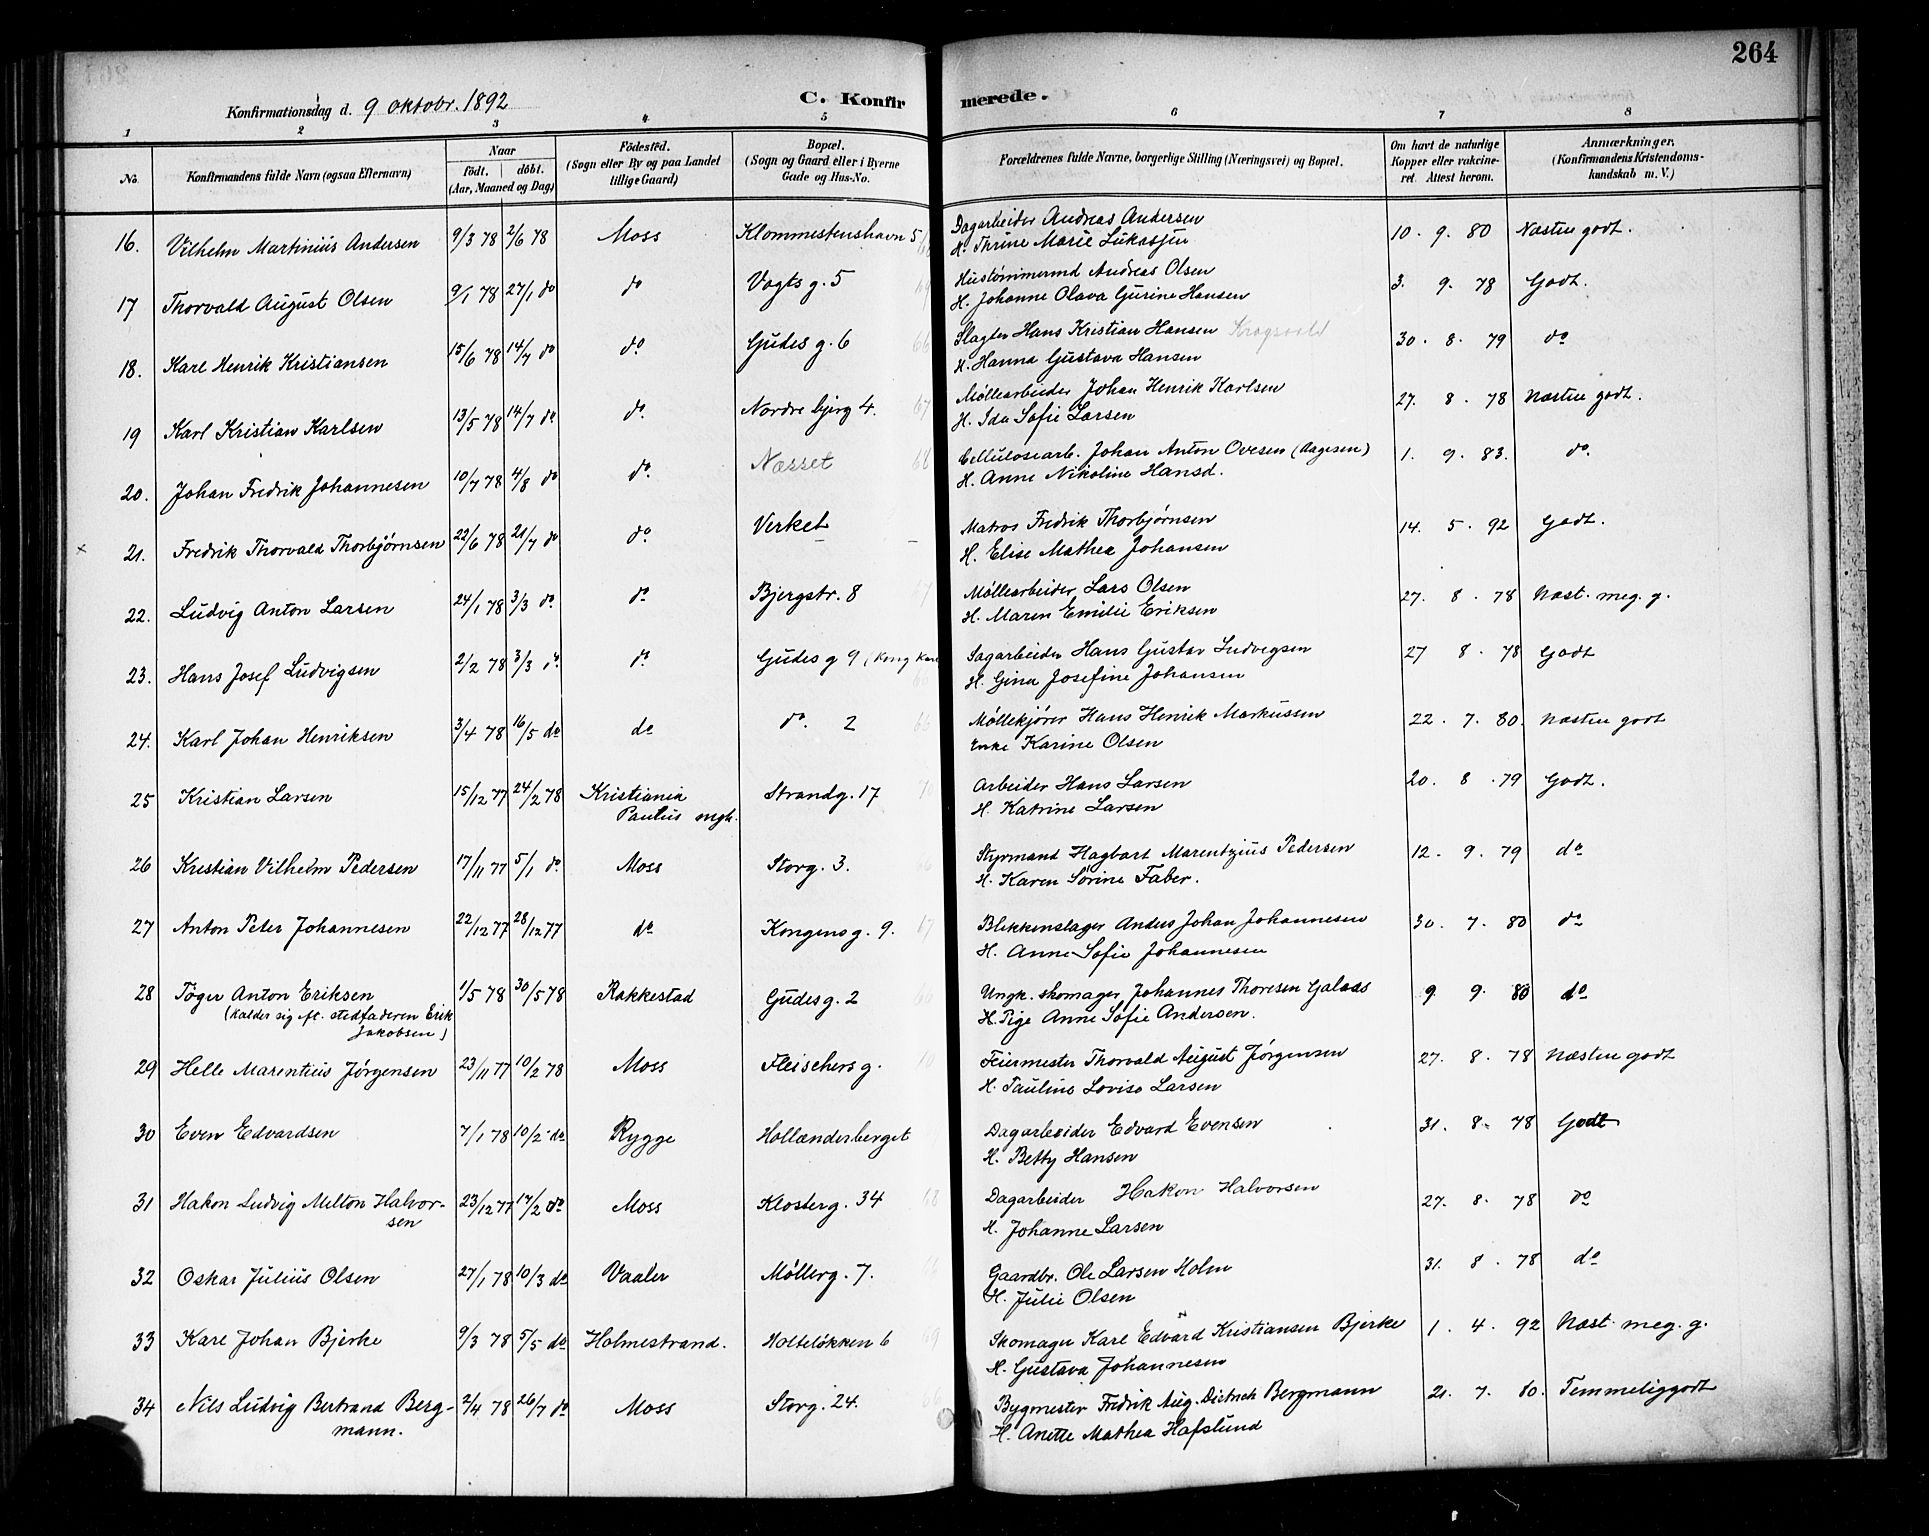 264
Konfirmationsdag d. 9 oktobr. 1892
C. Konfirmerede.
1 2 3 4 5 6 7 8
No. Konfirmandens fulde Navn (ogsaa Efternavn) Naar födt. döbt. (Aar, Maaned og Dag) Födested. (Sogn eller By og paa Landet tillige Gaard) Bopæl. (Sogn og Gaard eller i Byerne Gade og Hus-No. Forældrenes fulde Navne, borgerlige Stilling (Næringsvei) og Bopæl. Om havt de naturlige Kopper eller vakcineret. Attest herom. Anmærkninger. (Konfirmandens Kristendomskundskab m. V.)
16. Vilhelm Martinius Andersen 9/3 78 2/6 78 Moss Klommestenshavn 5 Dagarbeider Andreas Andersen 10. 9. 80 Næsten godt.
H. Thrine Marie Lukasjen
17 Thorvald August Olsen 9/1 78 27/1 do do Vogts g. 5 Hustømmermd Andreas Olsen 3. 9. 78 Godt.
H. Johanne Olava Gurine Hansen
18. Karl Henrik Kristiansen 15/6 78 14/7 do do. Gudes g. 6 66 Slagter Hans Kristian Hansen Krogsvold 30. 8. 79 do
H. Hanna Gustava Hansen
19 Karl Kristian Karlsen 13/5 78 14/7 do do. Nordre bjerg 4. 67 Møllearbeider Johan Henrik Karlsen 27. 8. 78 Næsten godt.
H. Ida Sofie Larsen
20. Johan Fredrik Johannesen 10/7 78 4/8 do do. Næsset 68 Cellulosearb. Johan Anton Ovesen (Aagesen) 1. 9. 83. do.
H. Anne Nikoline Hansd.
x 21. Fredrik Thorvald Thorbjörnsen 22/6 78 21/7 do do. Verket – Matros Fredrik Thorbjørnsen 14. 5. 92 Godt.
H. Elise Mathea Johansen
22. Ludvig Anton Larsen 24/1 78 3/3 do. do Bjergstr. 8 67 Møllearbeider Lars Olsen 27. 8. 78 Næst. meg. g.
H. Maren Emilie Eriksen
23. Hans Josef Ludvigsen 2/2 78 3/3 do. do Gudes g 9 (Kong Karl 66 Sagarbeider Hans Gustav Ludvigsen 27 8. 78 Godt
H. Gina Josefine Johansen
24. Karl Johan Henriksen 3/4 78 16/5 do do do. 2 66 Møllekjører Hans Henrik Markussen 22. 7. 80. Næsten godt
Enke Karine Olsen
25 Kristian Larsen 15/12 77 24/2 78 Kristiania Strandg. 17 70 Arbeider Hans Larsen 20. 8. 79 Godt.
Paulus mgh. H. Katrine Larsen
26 Kristian Vilhelm Pedersen 17/11 77 5/1 do. Moss Storg. 3. Styrmand Hagbart Marentzius Pedersen 12. 9. 79 do
H. Karen Sørine Faber.
27 Anton Peter Johannesen 22/12 77 28/12 77 do Kongens g. 9. 67 Blikkenslager Anders Johan Johannesen 30. 7. 80 do
H. Anne Sofie Johannesen
28 Töger Anton Eriksen 1/5 78 30/5 78 Rakkestad Gudes g. 2 Ungk. skomager Johannes Thoresen Galaas 9. 9. 80 do
(kalder sig eft. stedfaderen Erik Jakobsen) H. Pige Anne Sofie Andersen.
29 Helle Marentius Jørgensen 23/11 77 10/2 78 Moss Fleischers g. 70 Feiermester Thorvald August Jørgensen 27. 8. 78 Næsten godt
H. Pauline Lovise Larsen
30 Even Edvardsen 7/1 78 10/2 do Rygge Hollænderberget Dagarbeider Edvard Evensen 31. 8. 78 Godt
H. Betty Hansen
31 Hakon Ludvig Melton Halvorsen 23/12 77 17/2 do Moss Klosterg. 34 68 Dagarbeider Hakon Halvorsen 27. 8. 78 do
H. Johanne Larsen
32 Oskar Julius Olsen 27/1 78 10/3 do Vaaler Møllerg. 7. Gaardbr. Ole Larsen Holm 31. 8. 78 do
H. Julie Olsen
33 Karl Johan Bjerke 9/3 78 5/5 do Holmestrand. Holteløkken 6 69 Skomager Karl Edvard Kristiansen Bjerke 1. 4. 92 Næst. meg. g.
H. Gustava Johannesen
34 Nils Ludvig Bertrand Bergmann. 2/4 78 26/7 do Moss Storg. 24. 66 Bygmester Fredrik Aug. Dietrich Bergmann 21. 7. 80. Temmelig godt
H. Anette Mathea Hafslund